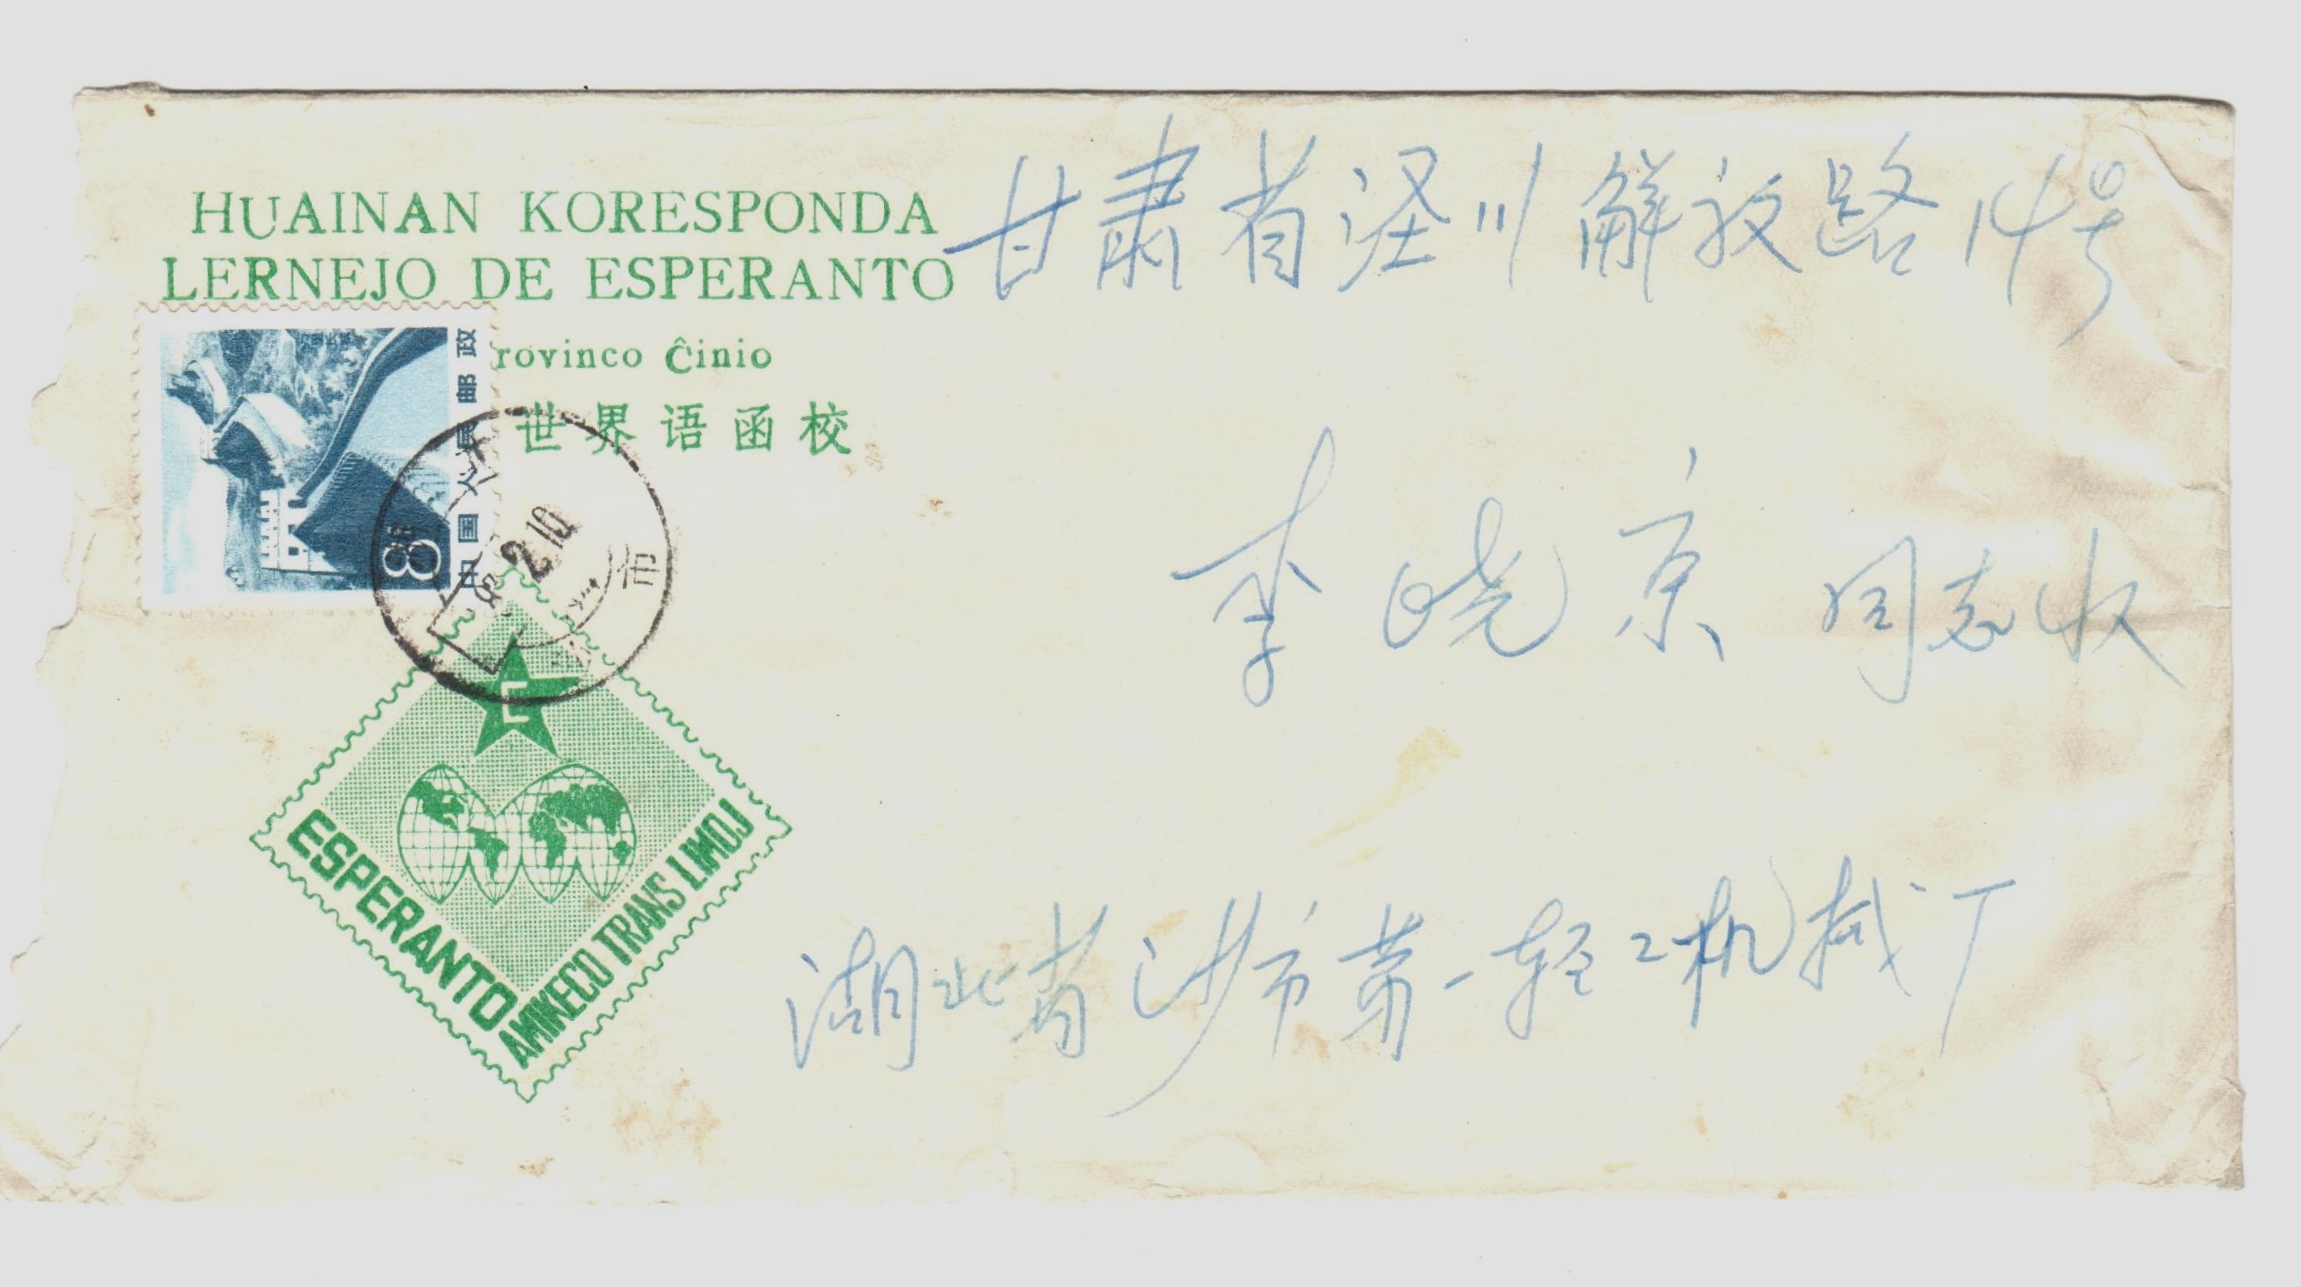 HUAINAN KORESPONDA
LERNEJO DE ESPERANTO
rovinco Ĉinio
世界语函校
中国人民邮政
8
2.10
市
E
ESPERANTO
AMIKECO TRANS LIMOJ
甘肃省泾川解放路14号
李晓京 同志收
湖北省沙市第一轻工机械厂